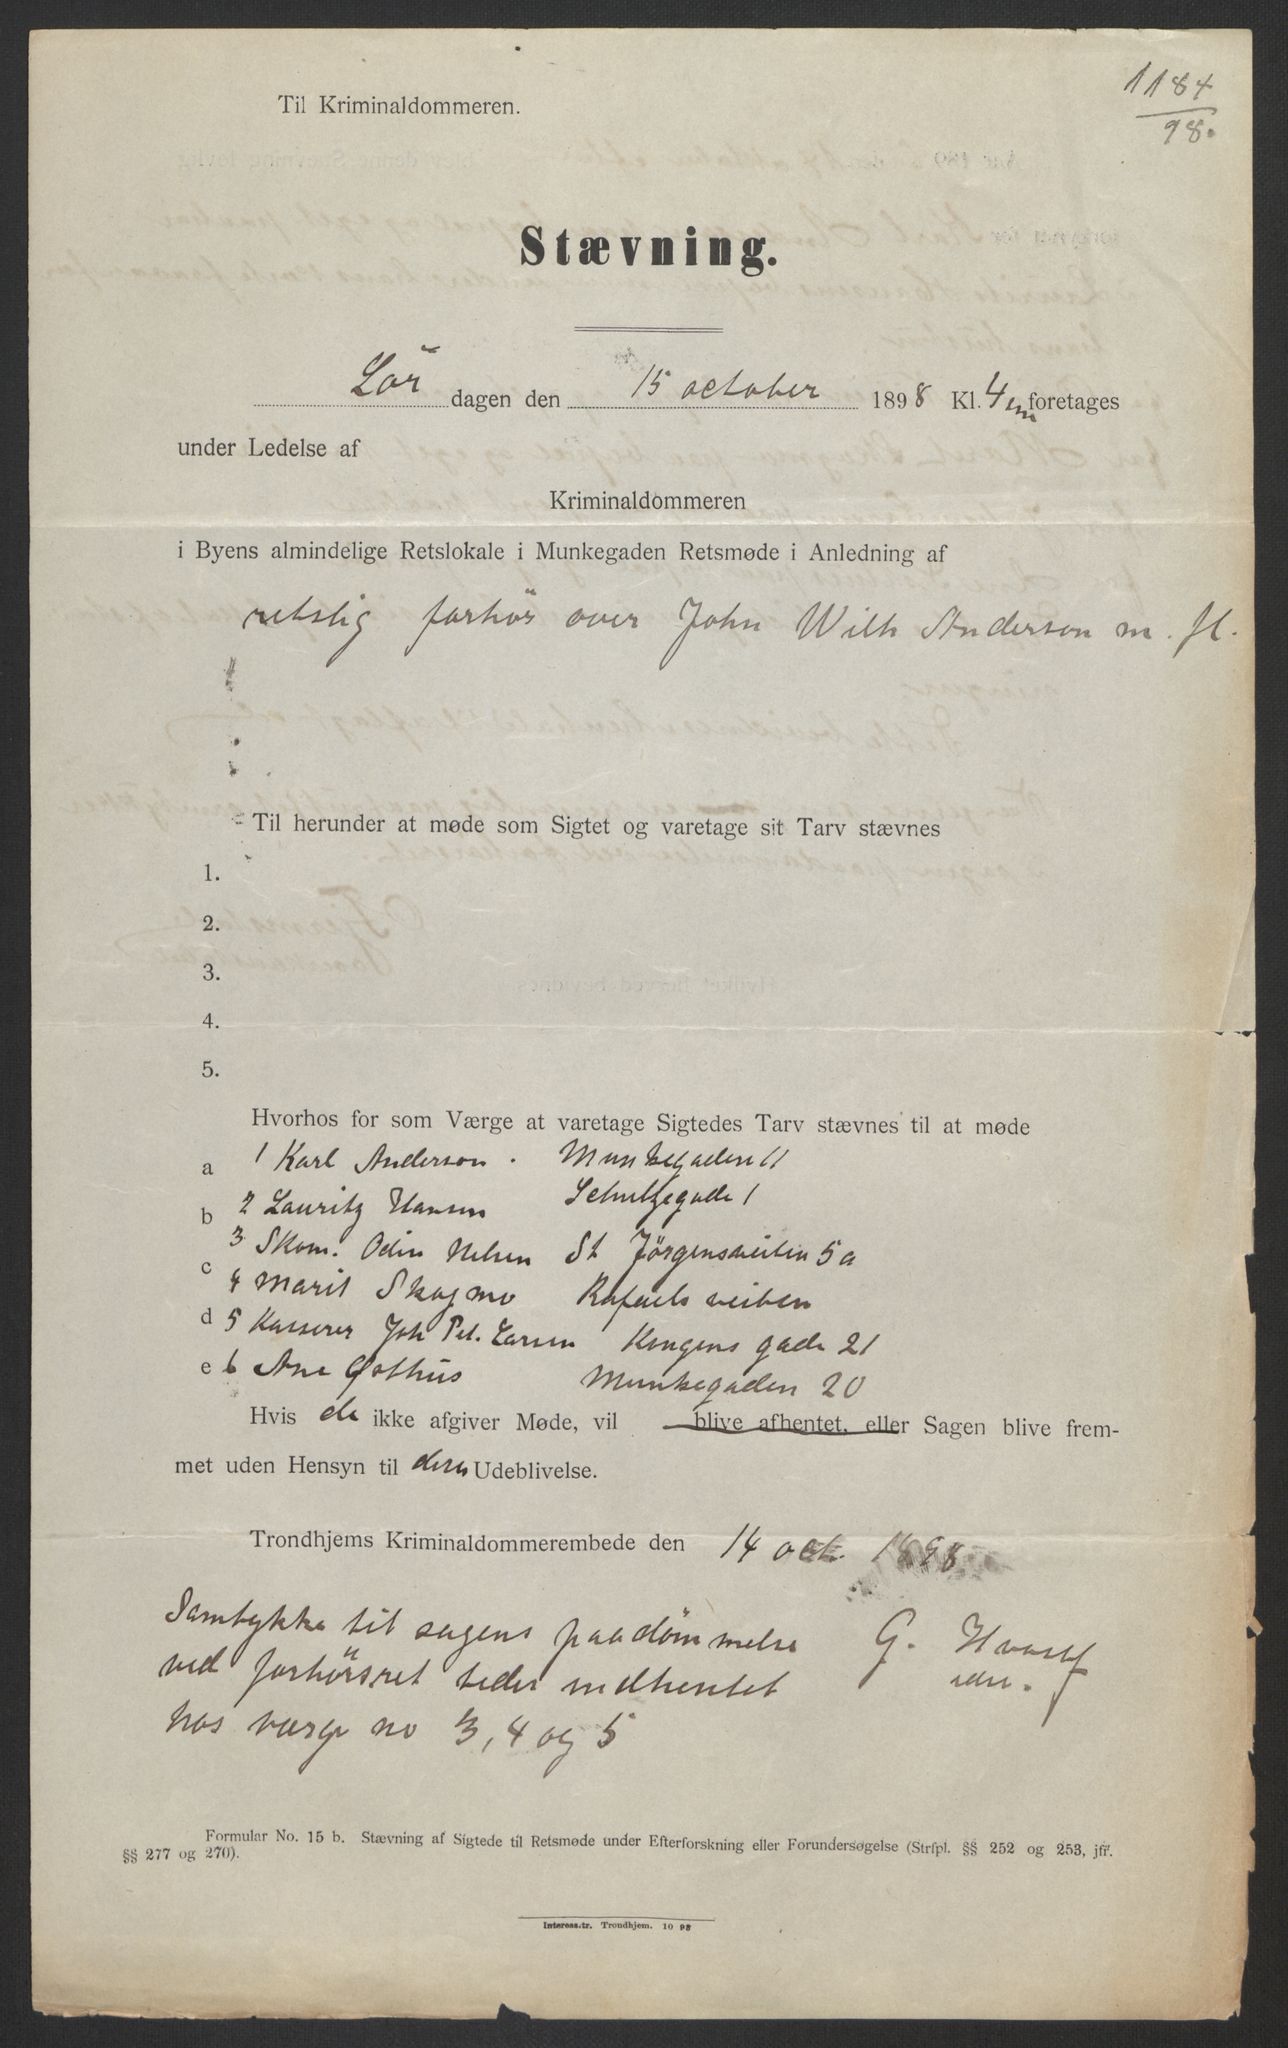 1184
98.
Til Kriminaldommeren.
Stævning.
Lör dagen den 15 october 1898 Kl. 4 em foretages
under Ledelse af
Kriminaldommeren
i Byens almindelige Retslokale i Munkegaden Retsmøde i Anledning af
retslig forhör over John Wilh Anderson m. fl.
Til herunder at møde som Sigtet og varetage sit Tarv stævnes
1.
2.
3.
4.
5.
Hvorhos for som Værge at varetage Sigtedes Tarv stævnes til at møde
a 1 Karl Anderson. Munkegaden 11
b 2 Lauritz Hansen Schultzegade 1
3 Skom. Odin Nelsen St Jørgensveiten 5a
c 4 Marit Skogmo Rafaels veiten
d 5 Kasserer Joh Pet. Larsen Kongens gade 21
e 6 Ane Gothus Munkegaden 20
Hvis de ikke afgiver Møde, vil blive afhentet, eller Sagen blive frem-
met uden Hensyn til deres Udeblivelse.
Trondhjems Kriminaldommerembede den 14 oct. 1898
Samtykke til sagens paadømmelse G.
ved forhörsret bedes indhentet
hos værge no 3, 4 og 5
Formular No. 15 b. Stævning af Sigtede til Retsmøde under Efterforskning eller Forundersøgelse (Strfpl. §§ 252 og 253, jfr.
§§ 277 og 270).
Interess.tr. Trondhjem. 10 98